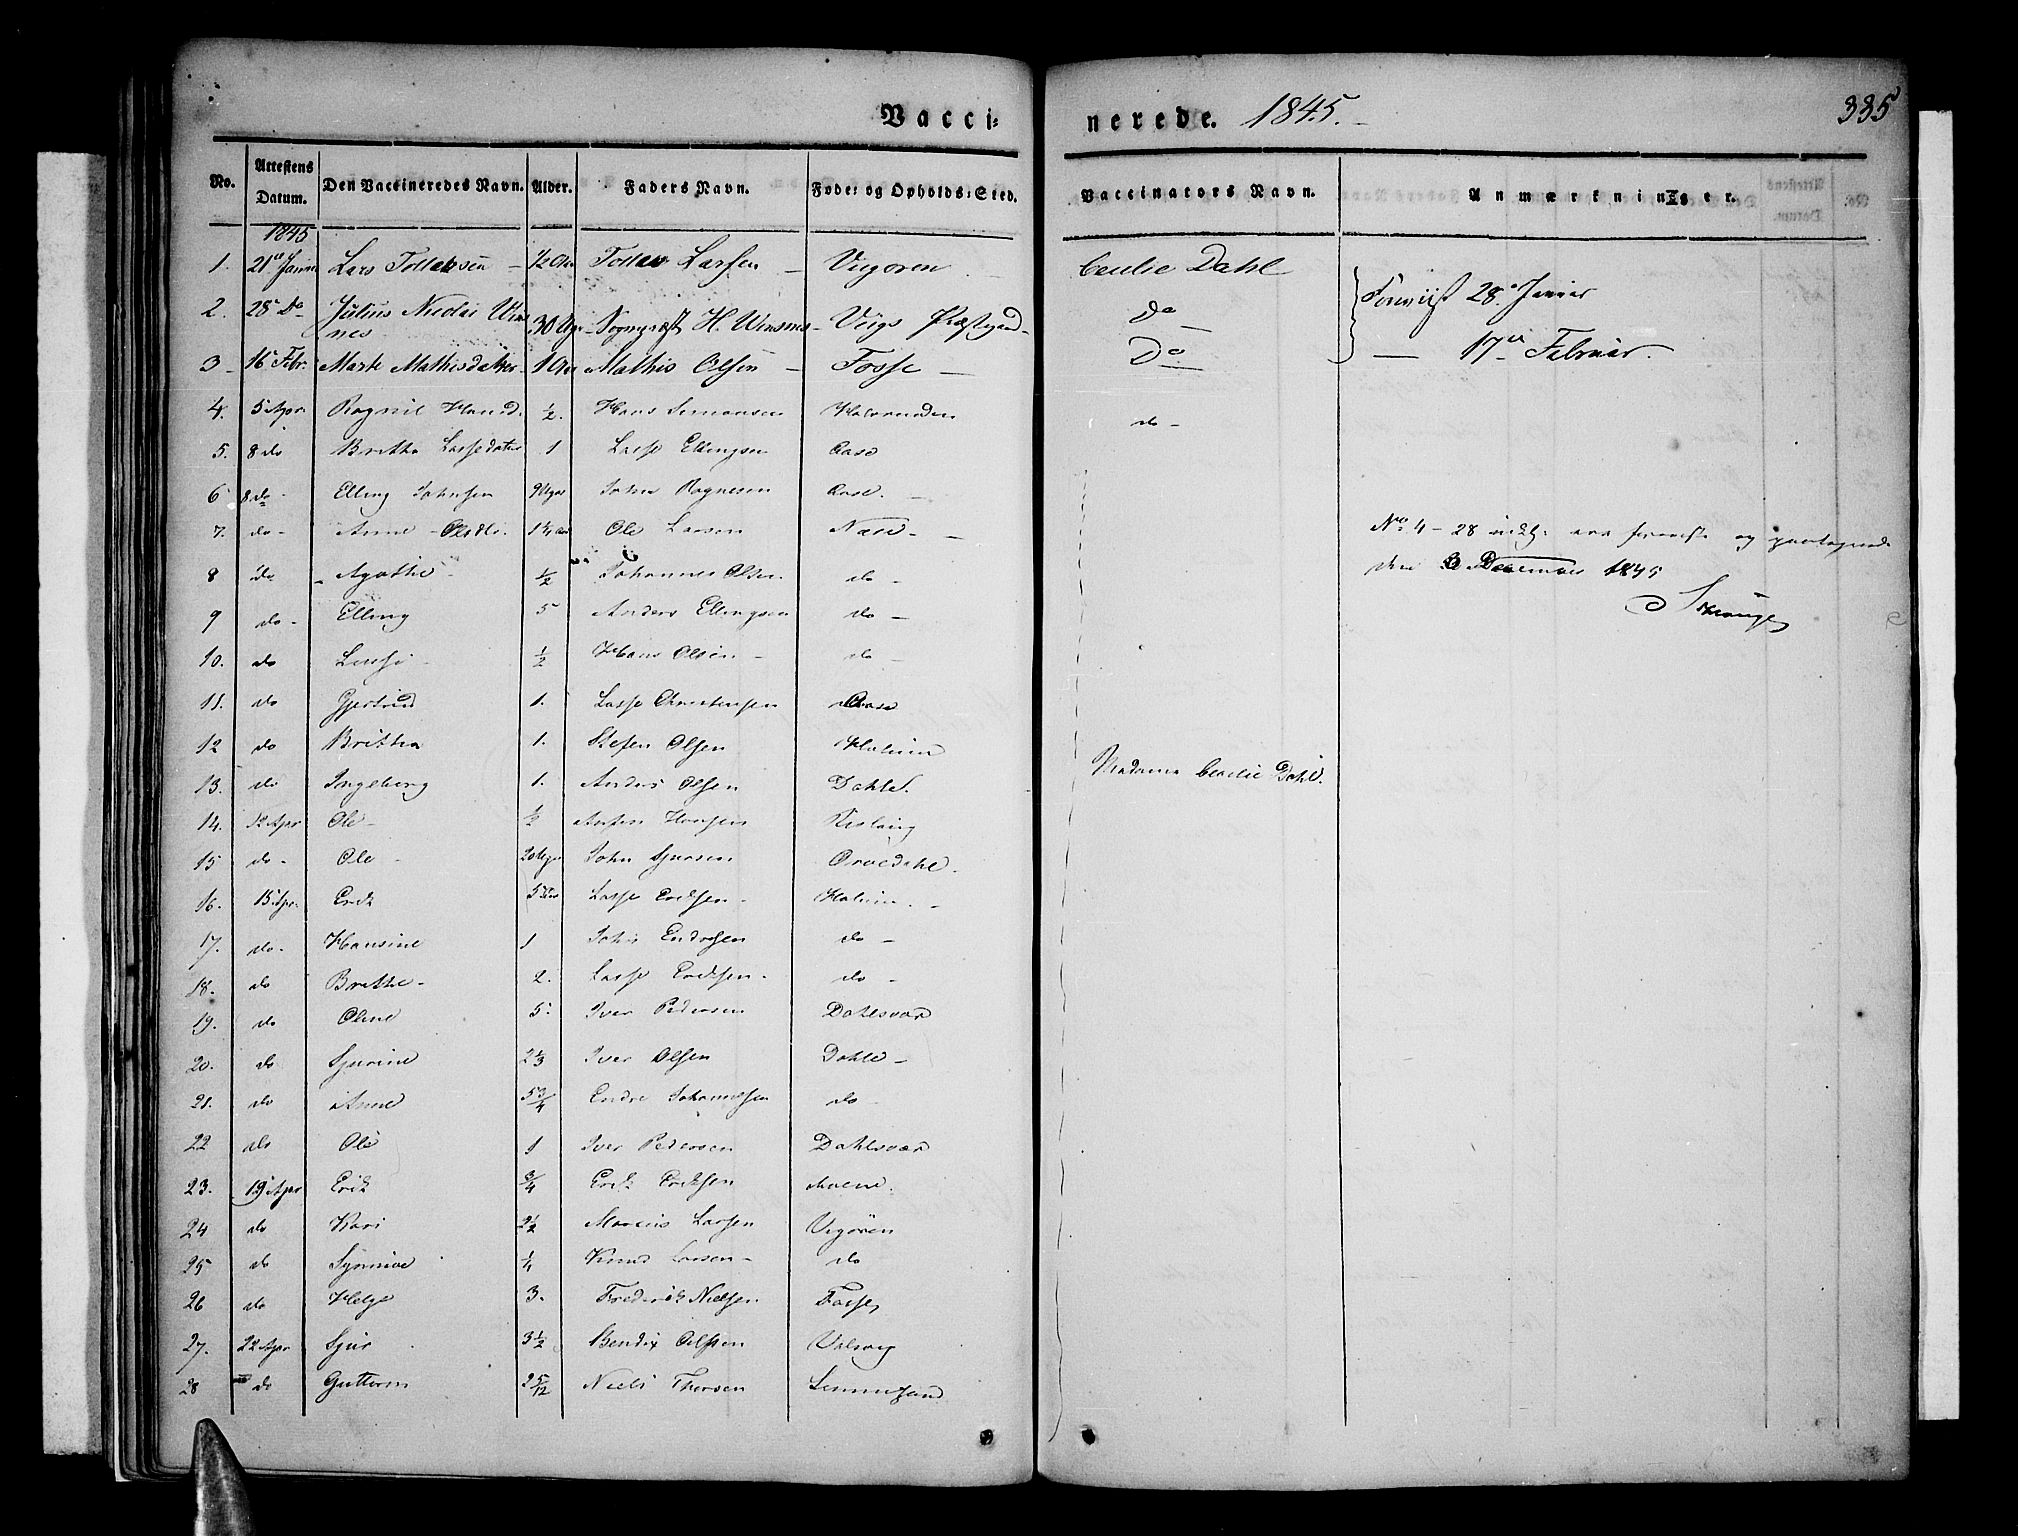 Vacci-
nerede. 1845.
335
No. Attestens Datum. Den Vaccineredes Navn. Alder. Faders Navn. Føde- og Opholds-Sted. Vaccinators Navn. Anmærkninger.
1845
1. 21 Janu Lars Tollaksen Tollak Larsen Vigøren Cecilie Dahl
Forevist 28 Januar
2. 28 Do Julius Nicolai Wins
nes 30 Uger Sognepræst H. Winsnes Vigs Præstgaard Do
3 16 Febr. Marte Mathisdatter 1 Aar Mathis Olsen Fosse Do 17 Februar.
4. 5 Apr. Ragnil Hansd. 1/2. Hans Simonsen do
5. 8 do Britha Lassedatter 1 Lasse Ellingsen Aase
6 8 do Elling Johnsen John Aase.
7. do Anne Olsdtr. Ole Larsen Næse
No 4 - 28 incl: forevist og
den 3 December 1845
8 do Agathe 1/2 Johannes Olsen do
9 do Elling 5 Anders Ellingsen do
10. do Lasse 1/2 Hans Olsen do
11. do Gjertrud 1. Lasse Christensen Aase
12 do Britha 1. Stefen Olsen
13. do Ingeborg 1. Anders Olsen Dahle. Madame Cecilie Dahl.
14. 12 Apr Ole 1/2 Hansen
15 do Ole 20 Uger John Sjursen
16. 15 Apr. Erik 5 Lasse Eriksen
17. do Hansine 1 John Endresen do
18. do Brithe 2. Lasse Eriksen do
19. do Oline 5. Iver Pedersen Dahlsvær
20. do Sjurine 2 1/3 Iver Olsen Dahle
21. do Anne 5 3/4 Endre Johannesen do
22 do Ole 1 Iver Pedersen Dahlsvær
23. 19 Apr Erik 3/4 Erik Eriksen
24 do Kari 2 1/2 Marcus Larsen Vigøren
25 do Synnive 1/4 Knud Larsen do
26 do Helge 3. Frederik Nielsen Fosse
27. 22 Apr Sjur 3 1/2 Bendix Olsen
28 do Guttorm 2 5/12 Niels Thorsen